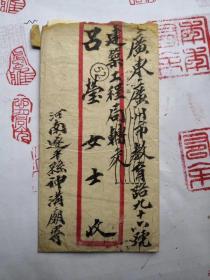 廣東廣州市教育路九十六號
建築工程局轉交
呂瑩女士收
河南遂平縣神溝廟寄